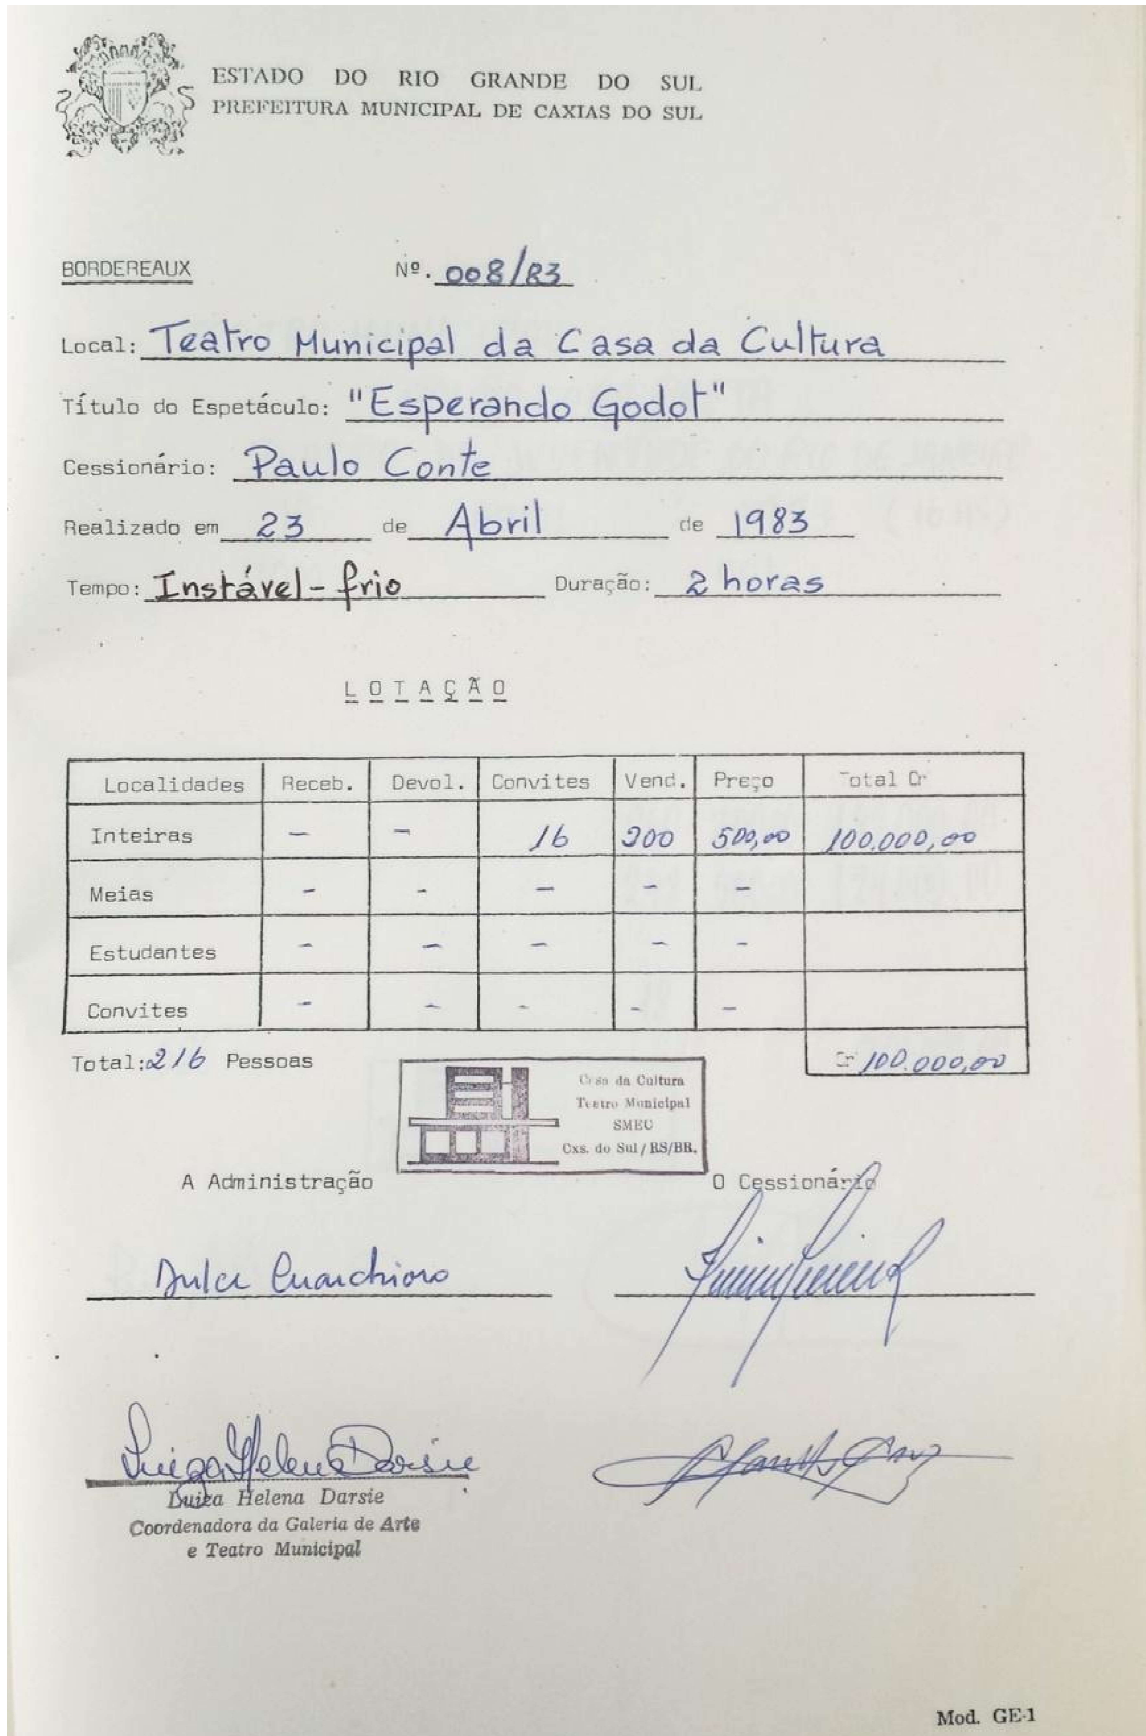 ESTADO DO RIO GRANDE DO SUL
PREFEITURA MUNICIPAL DE CAXIAS DO SUL
BORDEREAUX Nº. 008/83
Local: Teatro Municipal da Casa da Cultura
Título do Espetáculo: "Esperando Godot"
Cessionário: Paulo Conte
Realizado em 23 de Abril de 1983
Tempo: Instável - frio Duração: 2 horas
LOTAÇÃO
Localidades Receb. Devol. Convites Vend. Preço Total Cr
Inteiras - - 16 200 500,00 100.000,00
Meias - - - - -
Estudantes - - - - -
Convites - - - - -
Total: 216 Pessoas Cr 100.000,00
Casa da Cultura
Teatro Municipal
SMEC
Cxs. do Sul / RS/BR.
A Administração O Cessionário
Luiza Helena Darsie
Luiza Helena Darsie
Coordenadora da Galeria de Arte
e Teatro Municipal
Mod. GE-1